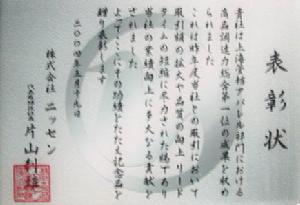 表彰状
貴社は上海素材アパレル部門における
商品調達力総合第一位の成果を収め
られました
これは昨年度当社との取引において
取引額の拡大や品質の向上リード
タイムの短縮に尽力された賜であり
当社の業績向上に多大なる貢献を
されました
よってここにその功績をたたえ記念品を
贈り表彰します
二〇〇四年五月十九日
株式会社 ニッセン
代表取締役社長 片山利雄